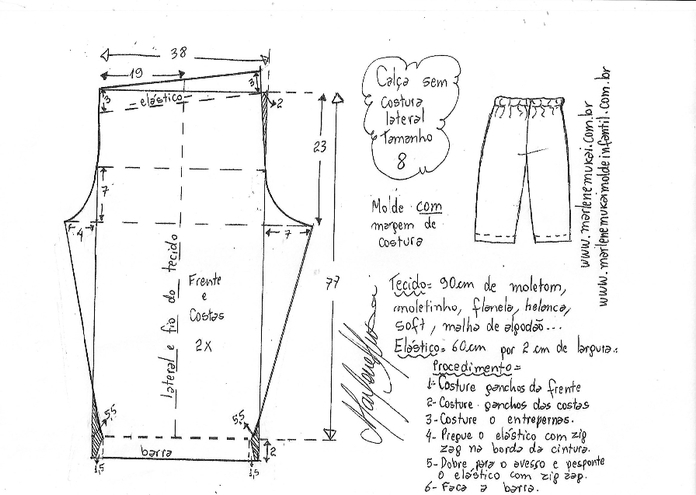 38
19
3
3
elástico
2
7
4
7
23
77
lateral e fio do tecido
Frente
e
Costas
2x
5,5
5,5
barra
1,5
1,5
2
Calça sem
Costura
lateral
Tamanho
8
Molde com
margem de
costura
www.marlenemukai.com.br
www.marlenemukaimoldeinfantil.com.br
Tecido= 90cm de moletom,
moletinho, flanela, helanca,
soft, malha de algodão...
Elástico= 60cm por 2 cm de largura.
Procedimento=
1- Costure ganchos da frente
2- Costure ganchos das costas
3- Costure o entrepernas.
4- Pregue o elástico com zig
zag na borda da cintura.
5- Dobre para o avesso e pesponte
o elástico com zig zag.
6- Faça a barra.